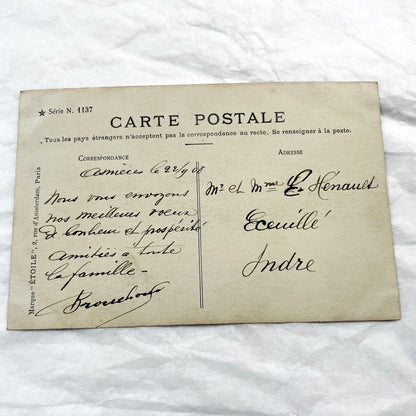 ★ Série N. 1137
CARTE POSTALE
Tous les pays étrangers n'acceptent pas la correspondance au recto. Se renseigner à la poste.
CORRESPONDANCE
Asnières le 22/9 08
Nous vous envoyons
nos meilleurs voeux
de bonheur et prospérité
amitiés à toute
la famille -
ADRESSE
Mr et Mme E. Hénault
Ecueillé
Indre
Marque "ÉTOILE", 2, rue d'Amsterdam, Paris